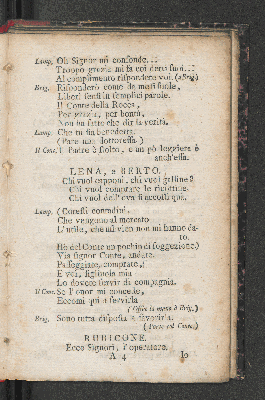 Lamp. Oh Signor mi confonde...:
Troppo grazia mi fa coi detti suoi...:
Al complimento rispondete voi. (a Brig.)
Brig. Risponderò come da mesi suole,
Liberi sensi in semplici parole.
Il Conte della Rocca,
Per grazia, per bontà,
Non ha fatto che dir la verità.
Lamp. Che tu sia benedetta.
(Pare una dottoressa.)
Il Conte. Il Padre è stolto, e un pò leggiera è
anch'essa.
LENA, e BERTO.
Chi vuol capponi, chi vuol galline?
Chi vuol comprare le ricottine.
Chi vuol dell'ova si accosti qua.
Lamp. (Cotesti contadini,
Che vengono al mercato
L'utile, che mi vien non mi hanno da-
to.
Hò del Conte un pochin di soggezione.)
Via signor Conte, andate,
Passeggiate, comprate;
E voi, figliuola mia
Lo dovete servir di compagnia.
Il Cont. Se l'onor mi concede,
Eccomi quì a servirla
(Offre la mano à Brig.)
Brig. Sono tutta disposta a favorirla.
(Parte col Conte.)
RUBICONE.
Ecco Signori, l'operatore.
A 4 Io